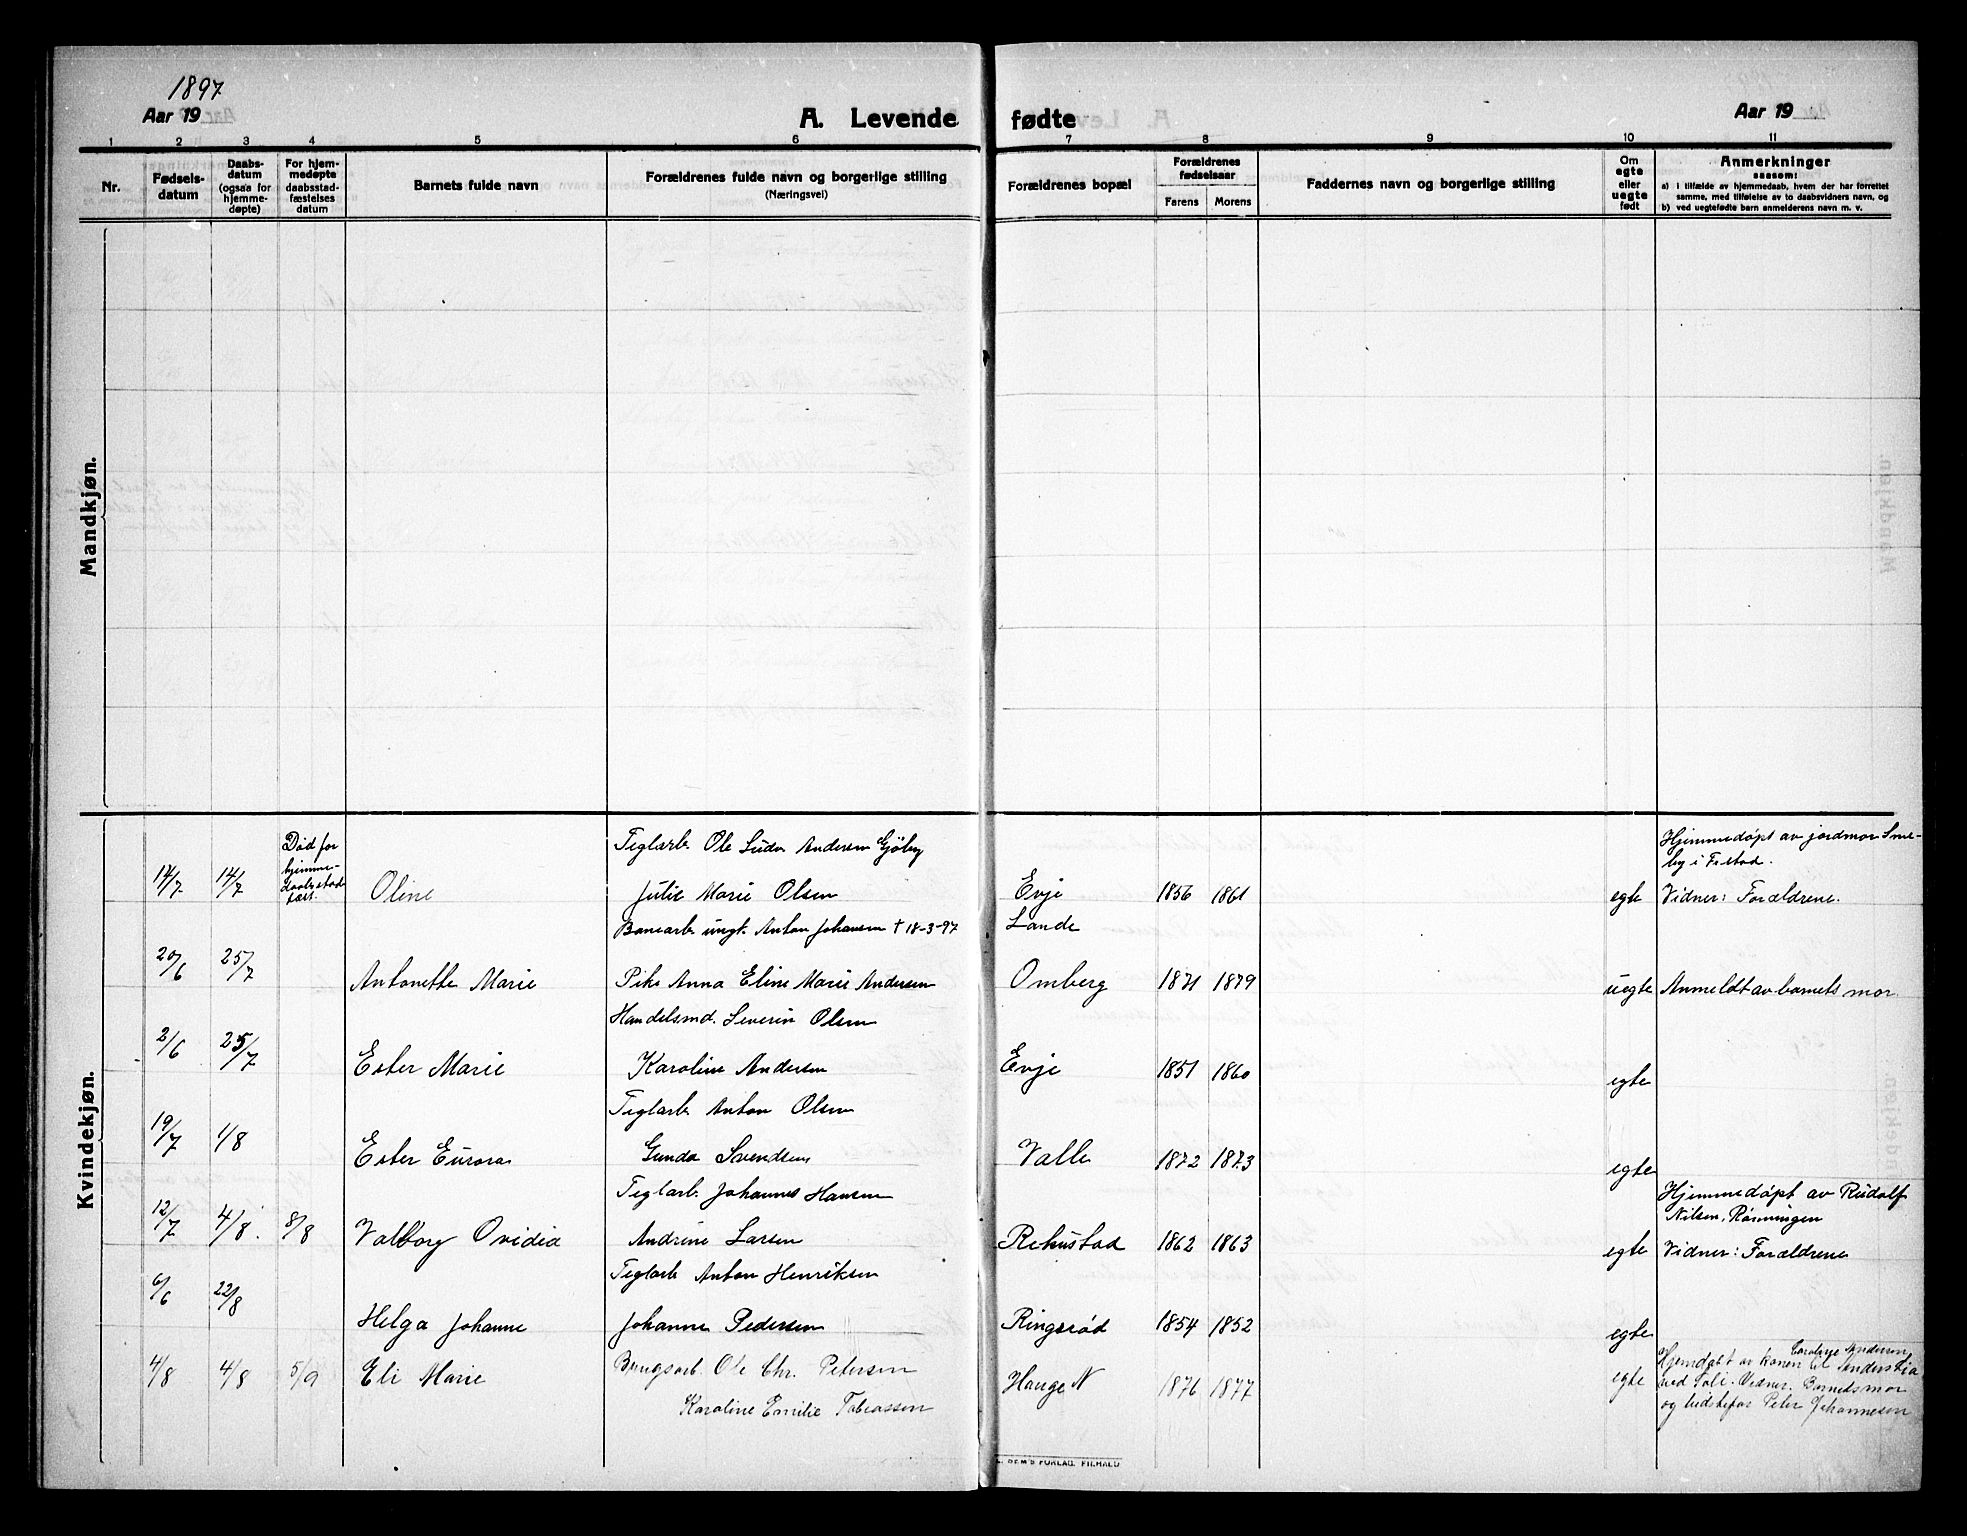 1897
Aar 19
A. Levende fødte
Aar 19
1 2 3 4 5 6 7 8 9 10 11
Nr.
Fødsels-
datum
Daabs-
datum
(ogsaa for
hjemme-
døpte)
For hjem-
medøpte
daabsstad-
fæstelses
datum
Barnets fulde navn
Forældrenes fulde navn og borgerlige stilling
(Næringsvei)
Forældrenes bopæl
Forældrenes
fødselsaar
Farens Morens
Faddernes navn og borgerlige stilling
Om
egte
eller
uegte
født
Anmerkninger
saasom:
a) i tilfælde av hjemmedaab, hvem der har forrettet
samme, med tilføielse av to daabsvidners navn, og
b) ved uegtefødte barn anmelderens navn m. v.
Mandkjøn.
Kvindekjøn.
Død før
hjemme-
daabsstad
fæst.
Teglarb. Ole Andersen Gjöby
Hjemmedøpt av jordmor Sme-
by i
14/7 14/7 Oline Julie Marie Olsen Evje 1856 1861 egte Vidner: Forældrene.
Banearb. ungk. Anton Johansen † 18-3-97 Lande
20/6 25/7 Antonette Marie Pike Anna Eline Marie Andersen Omberg 1871 1879 uegte Anmeldt av barnets mor.
Handelsmd. Severin Olsen
2/6 25/7 Ester Marie Karoline Andersen Evje 1851 1860 egte
Teglarb. Anton Olsen
19/7 1/8 Ester Eurora Gunda Svendsen Valle 1872 1873 egte
Teglarb. Johannes Hansen
Hjemmedøpt av Rudolf
Nilsen, Rønningen
12/7 4/8. 8/8 Valborg Ovidia Andrine Larsen Rekustad 1862 1863 egte Vidner: Forældrene
Teglarb. Anton Henriksen
6/6 22/8 Helga Johanne Johanne Pedersen Ringsrød 1854 1852 egte
4/8 4/8 5/9 Eli Marie Brugsarb. Ole Chr. Petersen Hauge N 1876 1877 egte
Karoline Emilie Tobiassen
Andersen,
Hjemdøbt av konen til
ved Soli. Vidner. Barnets mor
og bedstefar Peter Johannesen
FORLAG. FR.HALD